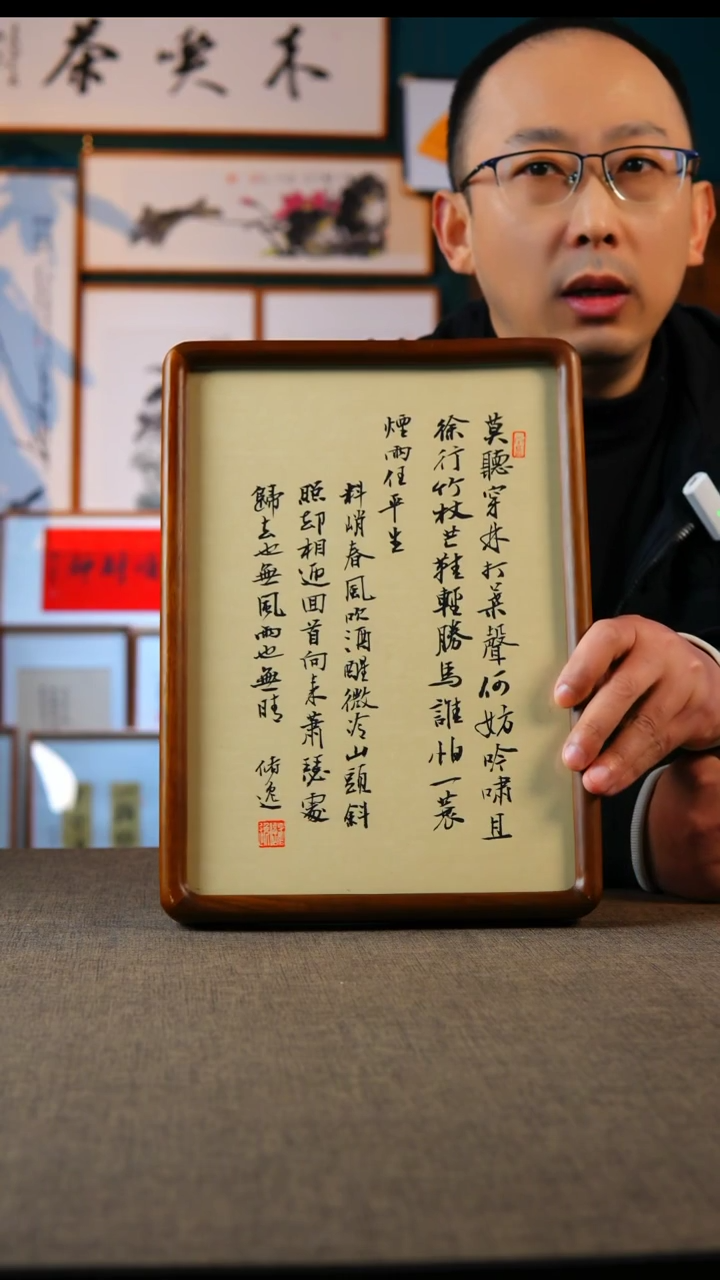 喫茶
莫聽穿林打葉聲何妨吟嘯且
徐行竹杖芒鞋輕勝馬誰怕一蓑
煙雨任平生
料峭春風吹酒醒微冷山頭斜
照却相迎回首向来蕭瑟處
歸去也無風雨也無晴